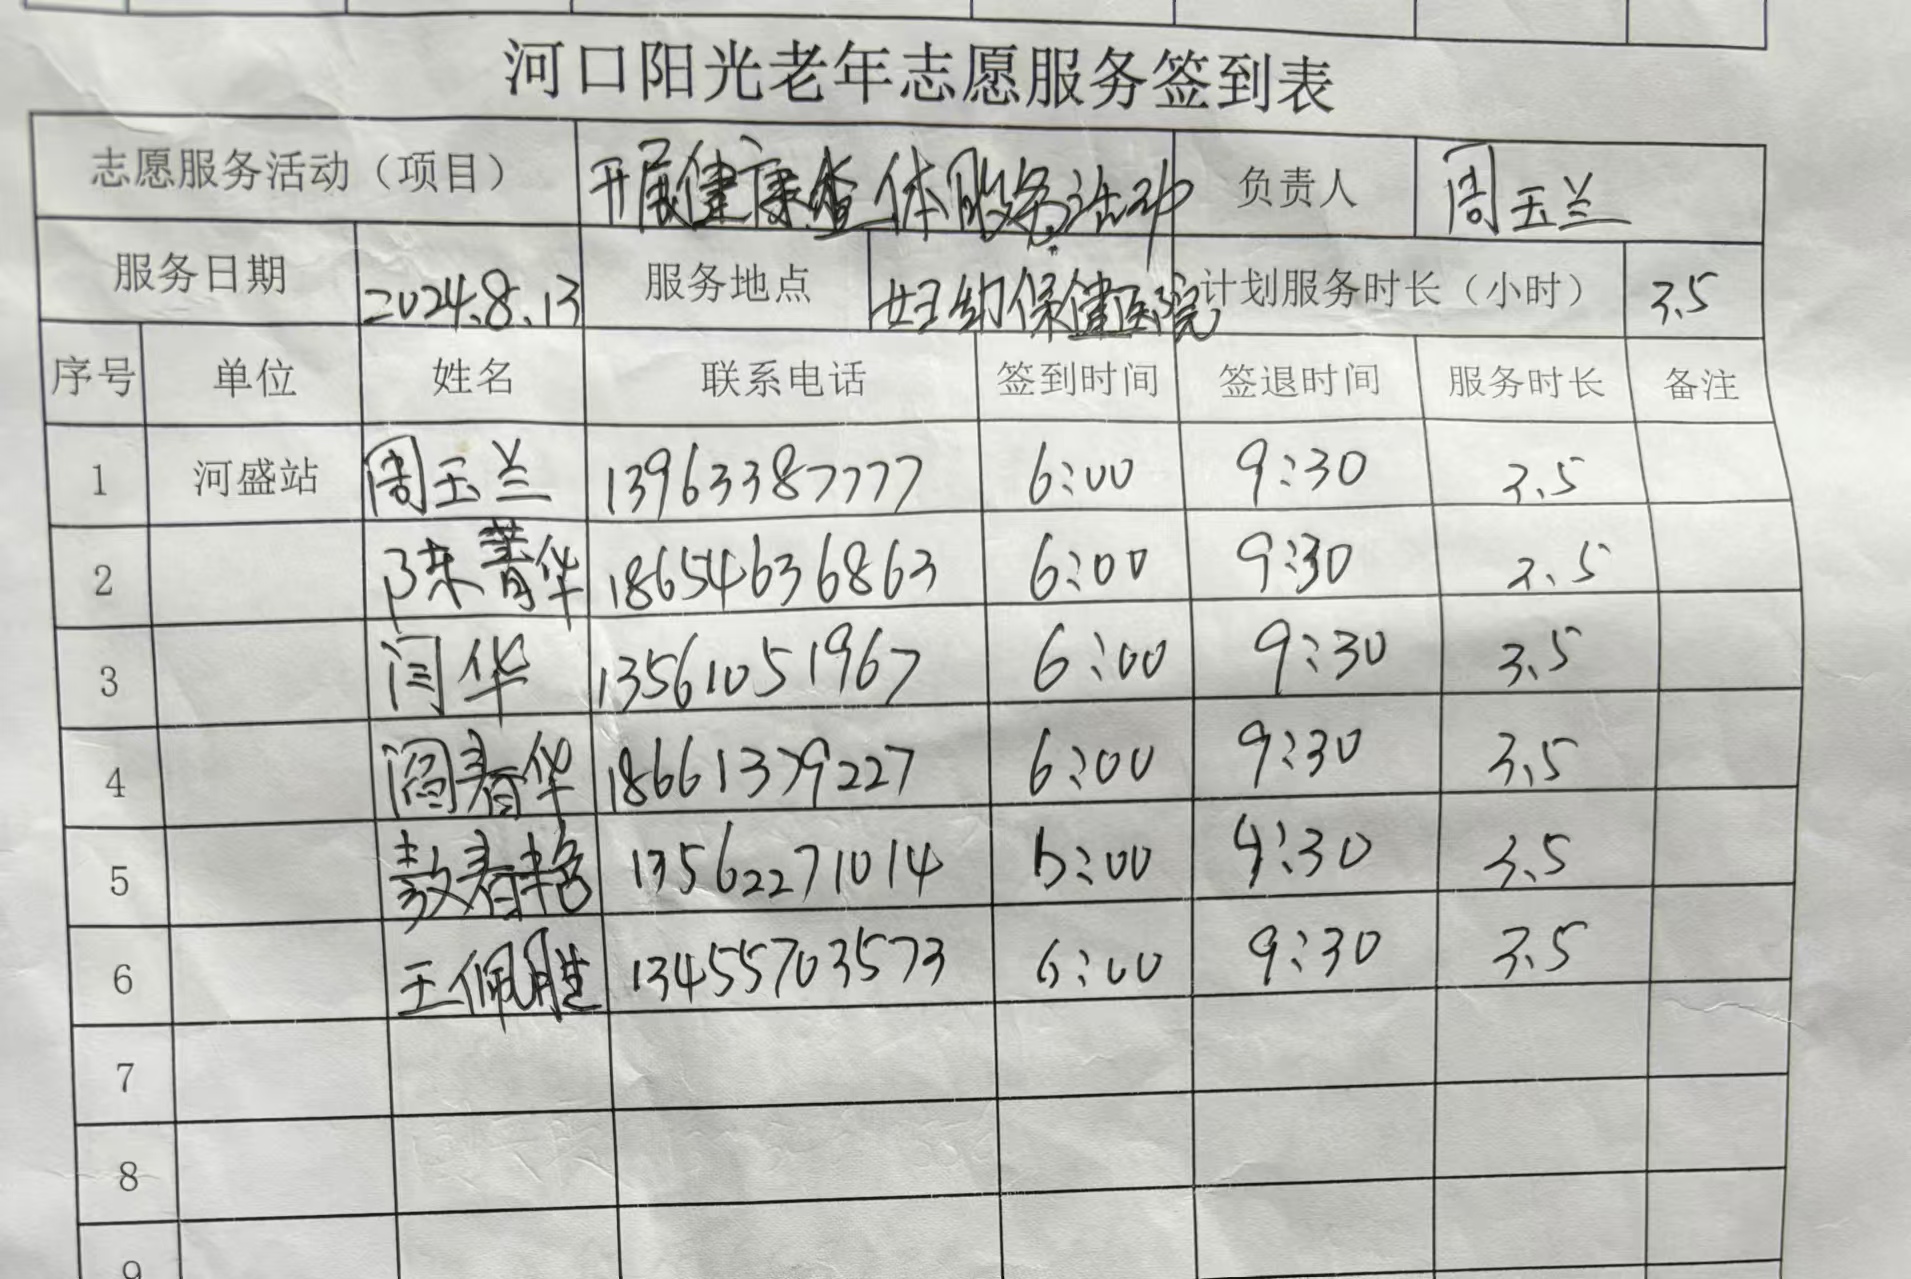 河口阳光老年志愿服务签到表
志愿服务活动（项目） 开展健康查体服务活动 负责人 周玉兰
服务日期 2024.8.13 服务地点 妇幼保健医院 计划服务时长（小时） 3.5
序号 单位 姓名 联系电话 签到时间 签退时间 服务时长 备注
1 河盛站 周玉兰 13963387777 6:00 9:30 3.5
2 陈菁华 18654636863 6:00 9:30 3.5
3 闫华 13561051967 6:00 9:30 3.5
4 阎春华 18661379227 6:00 9:30 3.5
5 13562271014 6:00 9:30 3.5
6 王佩胜 13455703573 6:00 9:30 3.5
7
8
9